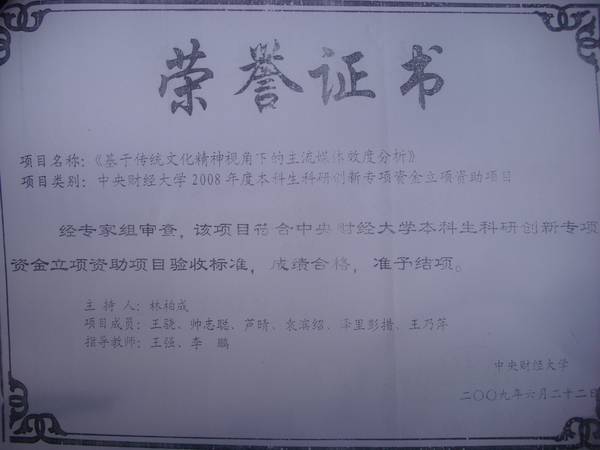 荣誉证书
项目名称:《基于传统文化精神视角下的主流媒体效度分析》
项目类别: 中央财经大学2008年度本科生科研创新专项资金立项资助项目
经专家组审查,该项目符合中央财经大学本科生科研创新专项
资金立项资助项目验收标准,成绩合格,准予结项。
主 持 人:林柏成
项目成员:王骁、帅志聪、芦晴、袁滨绍、泽里彭措、王乃萍
指导教师:王强、李 鹏
中央财经大学
二〇〇九年六月二十二日